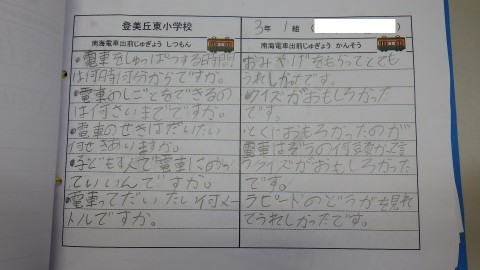 登美丘東小学校
3年 1組 (
南海電車出前じゅぎょう しつもん
南海電車出前じゅぎょう かんそう
●電車をしゅっぱつする時間
は何時何分からですか。
●電車のしごとをできるの
は何さいまでですか。
●電車のせきはだいたい
何せきありますか。
●子ども1人で電車にのっ
ていいんですか。
●電車ってだいたい何メー
トルですか。
おみやげをもらってとても
うれしかったです。
クイズがおもしろかった
です。
とくにおもろかったのが
電車はぞうの何頭分かと言
うクイズがおもしろかった
です。
ラピードのどうがを見れ
てうれしかったです。